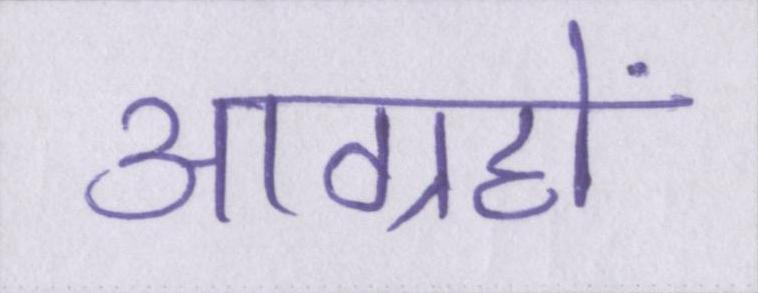 आग्रहों